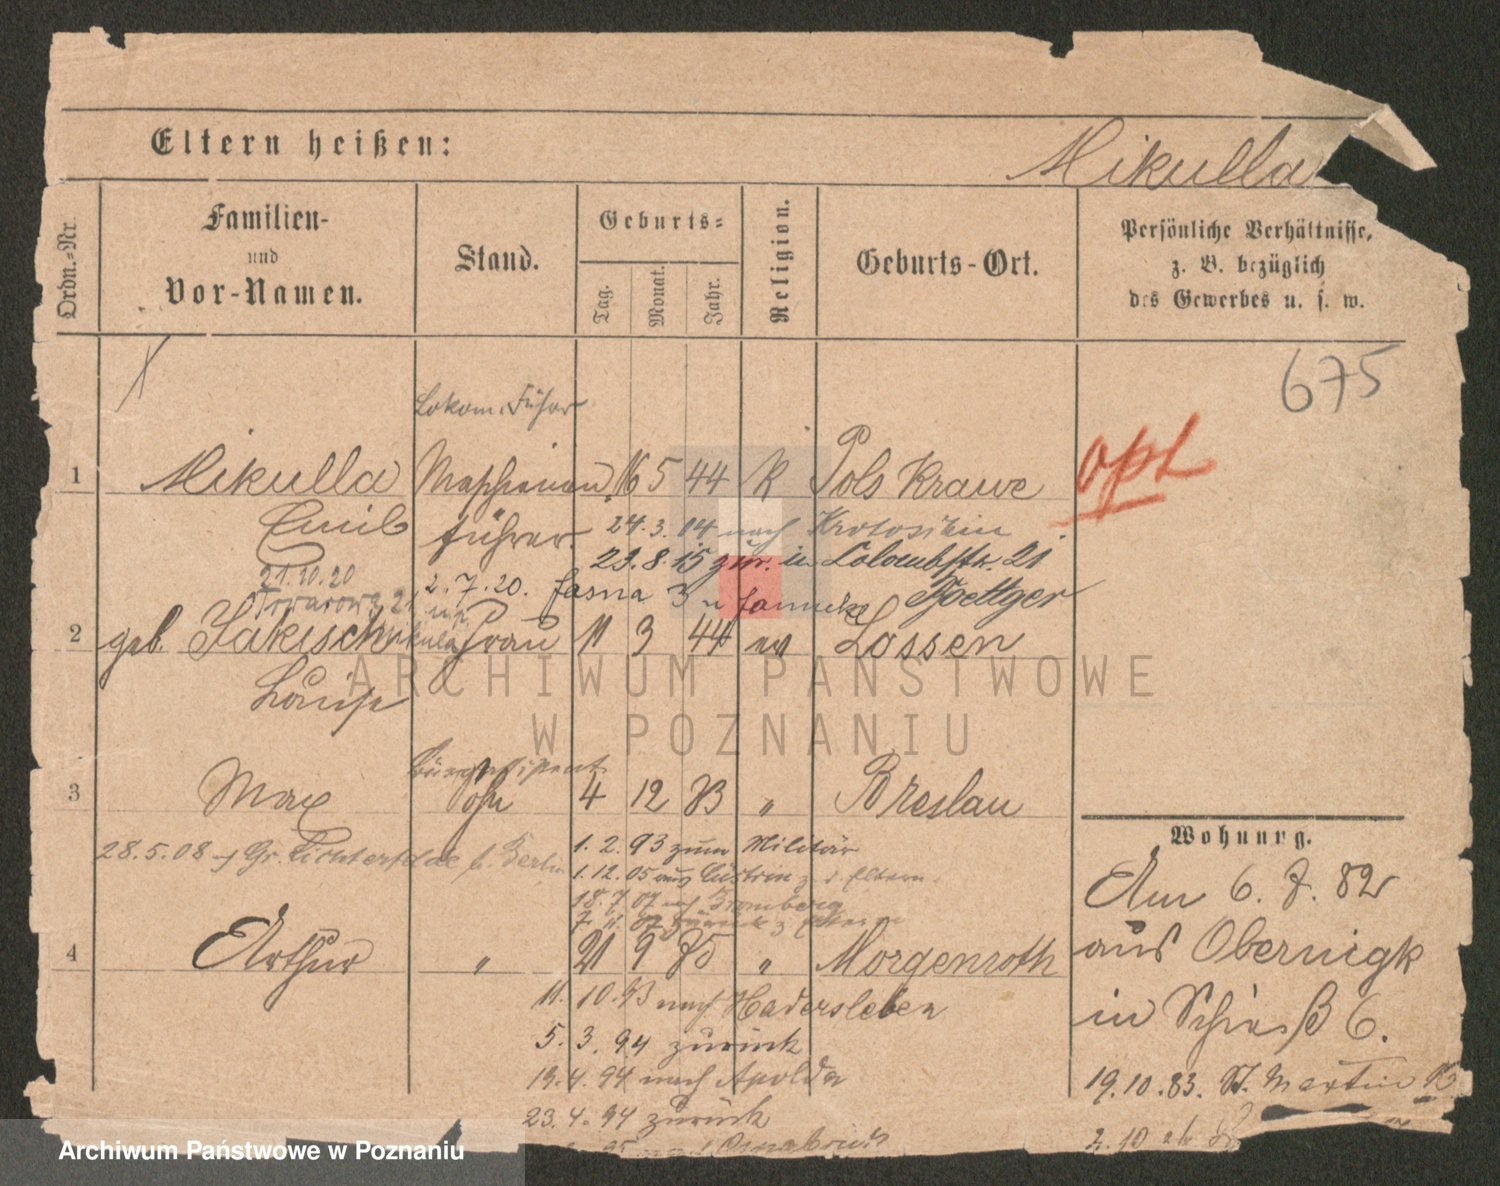 Eltern heißen:
Mikulla
Ordn.-Nr.
Familien-
und
Vor-Namen.
Stand.
Geburts-
Tag.
Monat.
Jahr.
Religion.
Geburts-Ort.
Persönliche Verhältnisse,
z. B. bezüglich
des Gewerbes u. s. w.
675
Lokom. Führer
1 Mikulla Maschinen 16 5 44 K Pols Krawe
opt
Emil führer. 24.3.04 nach Krotoschin
23.8.15 zur. in Colombstr. 21
21.10.20 2.7.20. Jasna 3 u Jannicke Boettger
Towarowa 21
2 geb. Jakisch Frau 11 3 44 ev Lossen
Louise
ARCHIWUM PAŃSTWOWE
W POZNANIU
3 Max Sohn 4 12 " Breslau
Wohnung.
1.2.93 zum Militär
28.5.08 Gr. Lichterfelde b. Berlin
1.12.05 aus Cüstrin z. d. Eltern
18.7.07 nach Bromberg
Am 6. 82
4 Arthur " 21 9 " Morgenroth
aus Obernigk
11.10.93 nach Hadersleben
in 6.
5.3.94 zurück
13.4.94 nach Apolda
19.10.83. St. Martin
23.4.94 zurück
2.10
Osnabrück
Archiwum Państwowe w Poznaniu